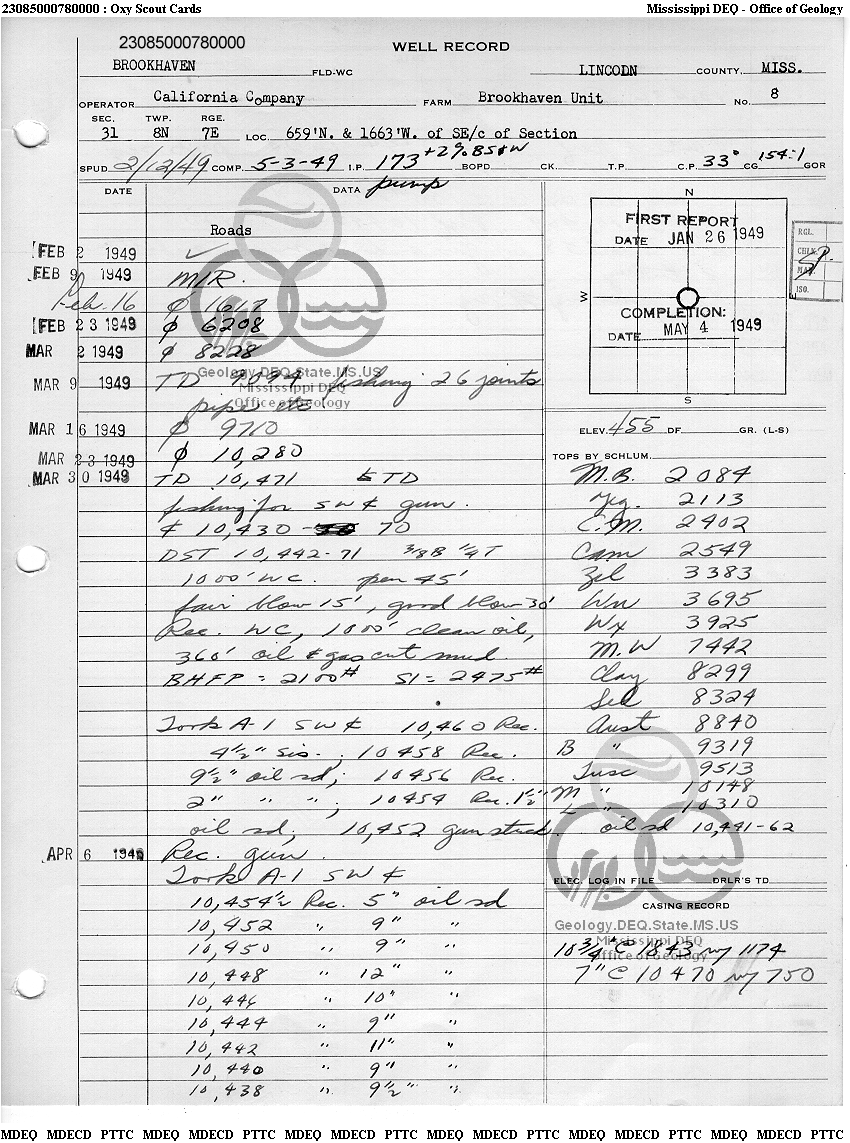 23085000780000 : Oxy Scout Cards Mississippi DEQ - Office of Geology
23085000780000
WELL RECORD
BROOKHAVEN FLD-WC LINCODN COUNTY, MISS.
OPERATOR California Company FARM Brookhaven Unit No. 8
SEC. TWP. RGE.
31 8N 7E LOC. 659'N. & 1663'W. of SE/c of Section
SPUD 2/12/49 COMP. 5-3-49 I.P. 173 +2% BS&W BOPD CK. T.P. C.P. 33° CG 154:1 GOR
pump
DATE DATA
Roads
FEB 2 1949 ✓
FEB 9 1949 MIR.
Feb. 16 Ø 1617
FEB 23 1949 Ø 6208
MAR 2 1949 Ø 8228
MAR 9 1949 TD 9594 fishing 26 joints
pipe etc
MAR 16 1949 Ø 9710
MAR 23 1949 Ø 10,280
MAR 30 1949 TD 10,471 TD
fishing for SW gun.
10,430 - 70
DST 10,442-71 3/8B 1/4T
1000' WC. pen 45'
fair blow 15', good blow 30'
Rec. WC, 1000' clean oil,
360' oil & gas cut mud.
BHFP = 2100# SI = 2475#
Took A-1 SW 10,460 Rec.
4 1/2" sis.; 10 458 Rec.
9 1/2" oil sd; 10 456 Rec.
2" " " ; 10 454 Rec. 1 1/2"
oil sd; 10,452 gun stuck.
APR 6 1949 Rec. gun.
Took A-1 SW
10,454 1/2 Rec. 5" oil sd
10,452 " 9" "
10,450 " 9" "
10,448 " 12" "
10,446 " 10" "
10,444 " 9" "
10,442 " 11" "
10,440 " 9" "
10,438 " 9 1/2" "
N
FIRST REPORT
DATE JAN 26 1949
W
COMPLETION:
DATE MAY 4 1949
S
RGL.
CHLK.
MAP.
ISO.
ELEV. 455 DF GR. (L-S)
TOPS BY SCHLUM.
M.B. 2084
Jig. 2113
C.M. 2402
Cam 2549
Zil 3383
Wn 3695
Wx 3925
M.W 7442
Clay 8299
Sel 8324
Aust 8840
B " 9319
Tusc 9513
M " 10148
L " 10310
oil sd 10,441-62
ELEC. LOG IN FILE DRLR'S TD
CASING RECORD
10 3/4" C 1843 w/ 1174
7" C 10 470 w/ 750
Geology.DEQ.State.MS.US
Mississippi DEQ
Office of Geology
Geology.DEQ.State.MS.US
Mississippi DEQ
Office of Geology
MDEQ MDECD PTTC MDEQ MDECD PTTC MDEQ MDECD PTTC MDEQ MDECD PTTC MDEQ MDECD PTTC MDEQ MDECD PTTC